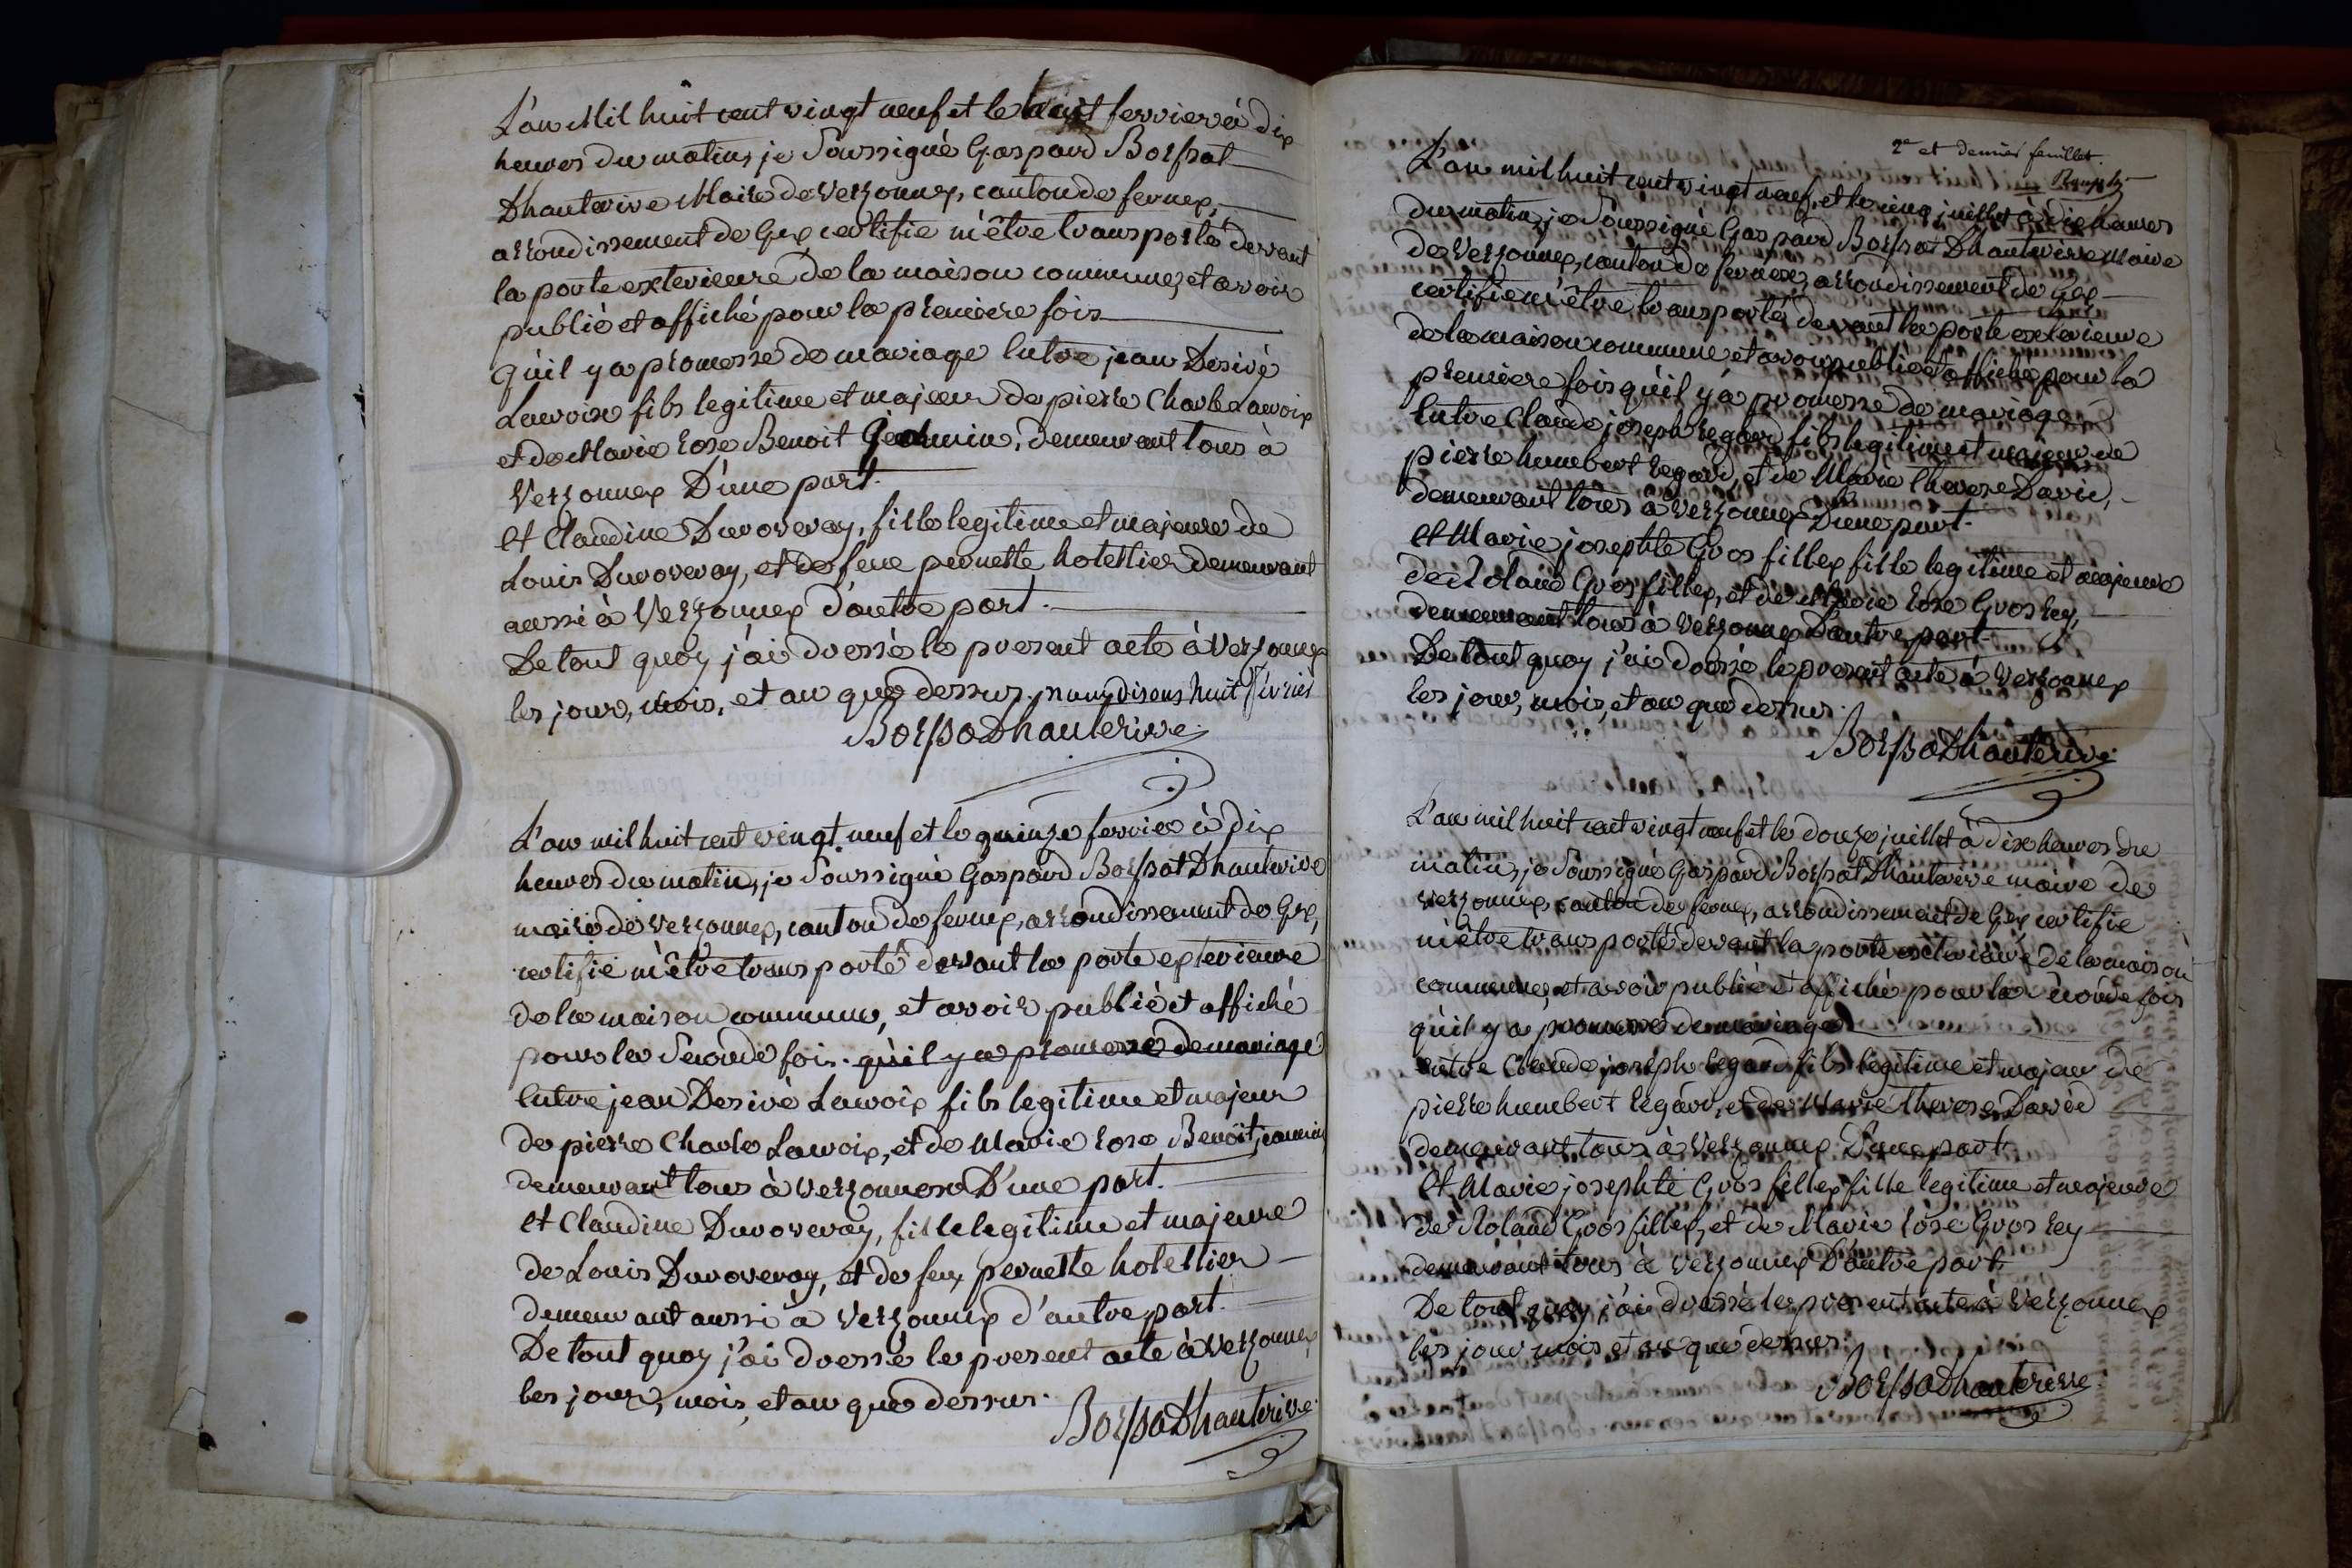 L'an Mil huit cent vingt neuf et le huit fevrier à dix
heures du matin, je Soussigné Gaspard Boissat
Dhauterive Maire de Versonnex, canton de fernex,
arrondissement de Gex certifie m'être transporté devant
la porte exterieure de la maison commune, et avoir
publié et affiché pour la premiere fois
qu'il y a promesse de mariage Entre jean Desiré
Lavoix fils legitime et majeur de pierre Charle Lavoix
et de Marie Rose Benoit Jeannin, demeurant tous à
Versonnex D'une part.
Et Claudine Duvoveray, fille legitime et majeure de
Louis Duvoveray, et de feue pernette hotellier demeurant
aussi à Versonnex d'autre part.
De tout quoy j'ai dressé le present acte à Versonnex
les jour, mois, et an que dessus. nous disons huit février
BoissaDhauterive
L'an mil huit cent vingt neuf et le quinze fevrier à dix
heures du matin, je Soussigné Gaspard Boissat Dhauterive
maire de Versonnex, canton de fernex, arrondissement de Gex,
certifie m'être transporté devant la porte exterieure
de la maison commune, et avoir publié et affiché
pour la Seconde fois. qu'il y a promesse de mariage
Entre jean Desiré Lavoix fils legitime et majeur
de pierre Charle Lavoix, et de Marie Rose Benoit jeannin
demeurant tous à Versonnex D'une part.
Et Claudine Duvoveray, fille legitime et majeure
de Louis Duvoveray, et de feue pernette hotellier
demeurant aussi à Versonnex d'autre part.
De tout quoy j'ai dressé le present acte à Versonnex
les jour, mois, et an que dessus.
BoissaDhauterive
2e et dernier feuillet.
L'an mil huit cent vingt neuf, et le cinq juillet à dix heures
du matin, je Soussigné Gaspard Boissat Dhauterive Maire
de Versonnex, canton de fernex, arrondissement de Gex
certifie m'être transporté devant la porte exterieure
de la maison commune et avoir publié et affiché pour la
premiere fois qu'il y a promesse de mariage
Entre Claude joseph Regard fils legitime et majeur de
pierre humbert Regard, et de Marie Therese David,
demeurant tous à Versonnex D'une part.
Et Marie josephte Gros fillex fille legitime et majeure
de Roland Gros fillex, et de Marie Rose Gros Rey,
demeurant tous à Versonnex D'autre part.
De tout quoy j'ai dressé le present acte à Versonnex
les jour, mois, et an que dessus.
BoissaDhauterive
L'an mil huit cent vingt neuf et le douze juillet à dix heures du
matin, je Soussigné Gaspard Boissat Dhauterive maire de
Versonnex, canton de fernex, arrondissement de Gex certifie
m'être transporté devant la porte exterieure de la maison
commune, et avoir publié et affiché pour la seconde fois
qu'il y a promesse de mariage
entre Claude joseph Regard fils legitime et majeur de
pierre humbert Regard, et de Marie Therese David
demeurant tous à Versonnex D'une part.
Et Marie josephte Gros fillex fille legitime et majeure
de Roland Gros fillex, et de Marie Rose Gros Rey
demeurant tous à Versonnex D'autre part.
De tout quoy j'ai dressé le present acte à Versonnex
les jour mois et an que dessus.
BoissaDhauterive